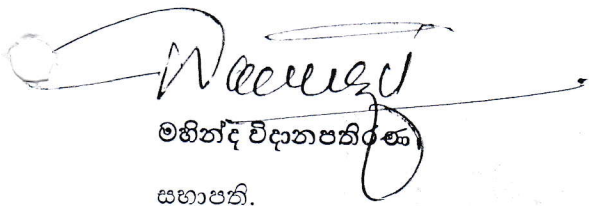 මහින්ද විදානපතිරණ
සභාපති.